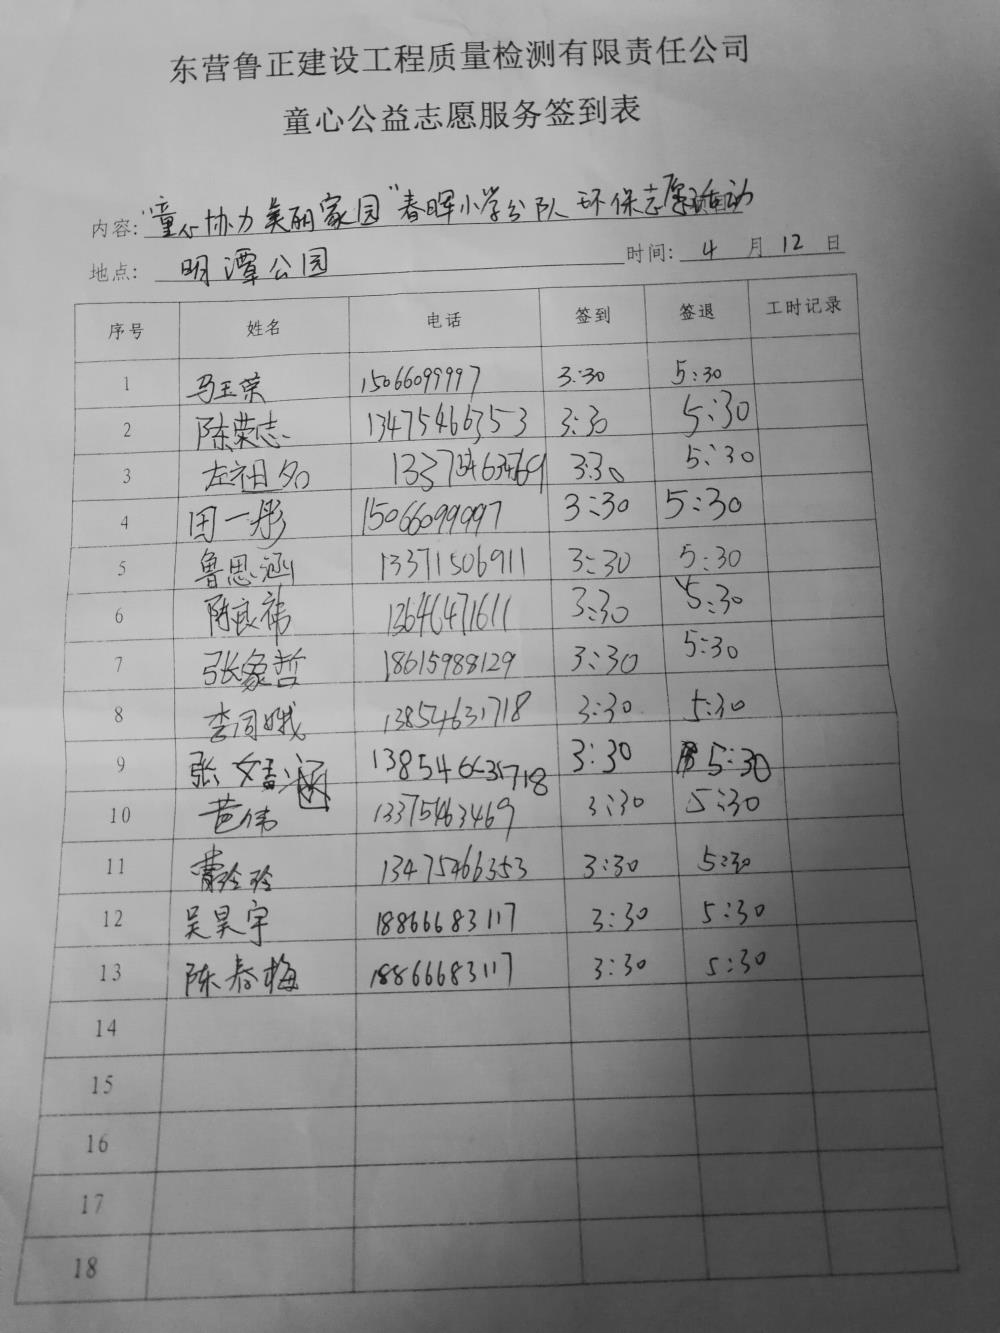 东营鲁正建设工程质量检测有限责任公司
童心公益志愿服务签到表
内容: "童心协力 美丽家园"春晖小学分队 环保志愿活动
地点: 明潭公园 时间: 4 月 12 日
序号 姓名 电话 签到 签退 工时记录
1 马玉荣 15066099997 3:30 5:30
2 陈荣志 13475466353 3:30 5:30
3 左祖名 13375463469 3:30 5:30
4 田一彤 15066099997 3:30 5:30
5 鲁思涵 13371506911 3:30 5:30
6 陈良祎 13646471611 3:30 5:30
7 张象哲 18615988129 3:30 5:30
8 李同娥 13854631718 3:30 5:30
9 张 涵 3:30 5:30
10 伟 13375463469 3:30 5:30
11 玲玲 13475466353 3:30 5:30
12 吴昊宇 18866683117 3:30 5:30
13 陈春梅 18866683117 3:30 5:30
14
15
16
17
18